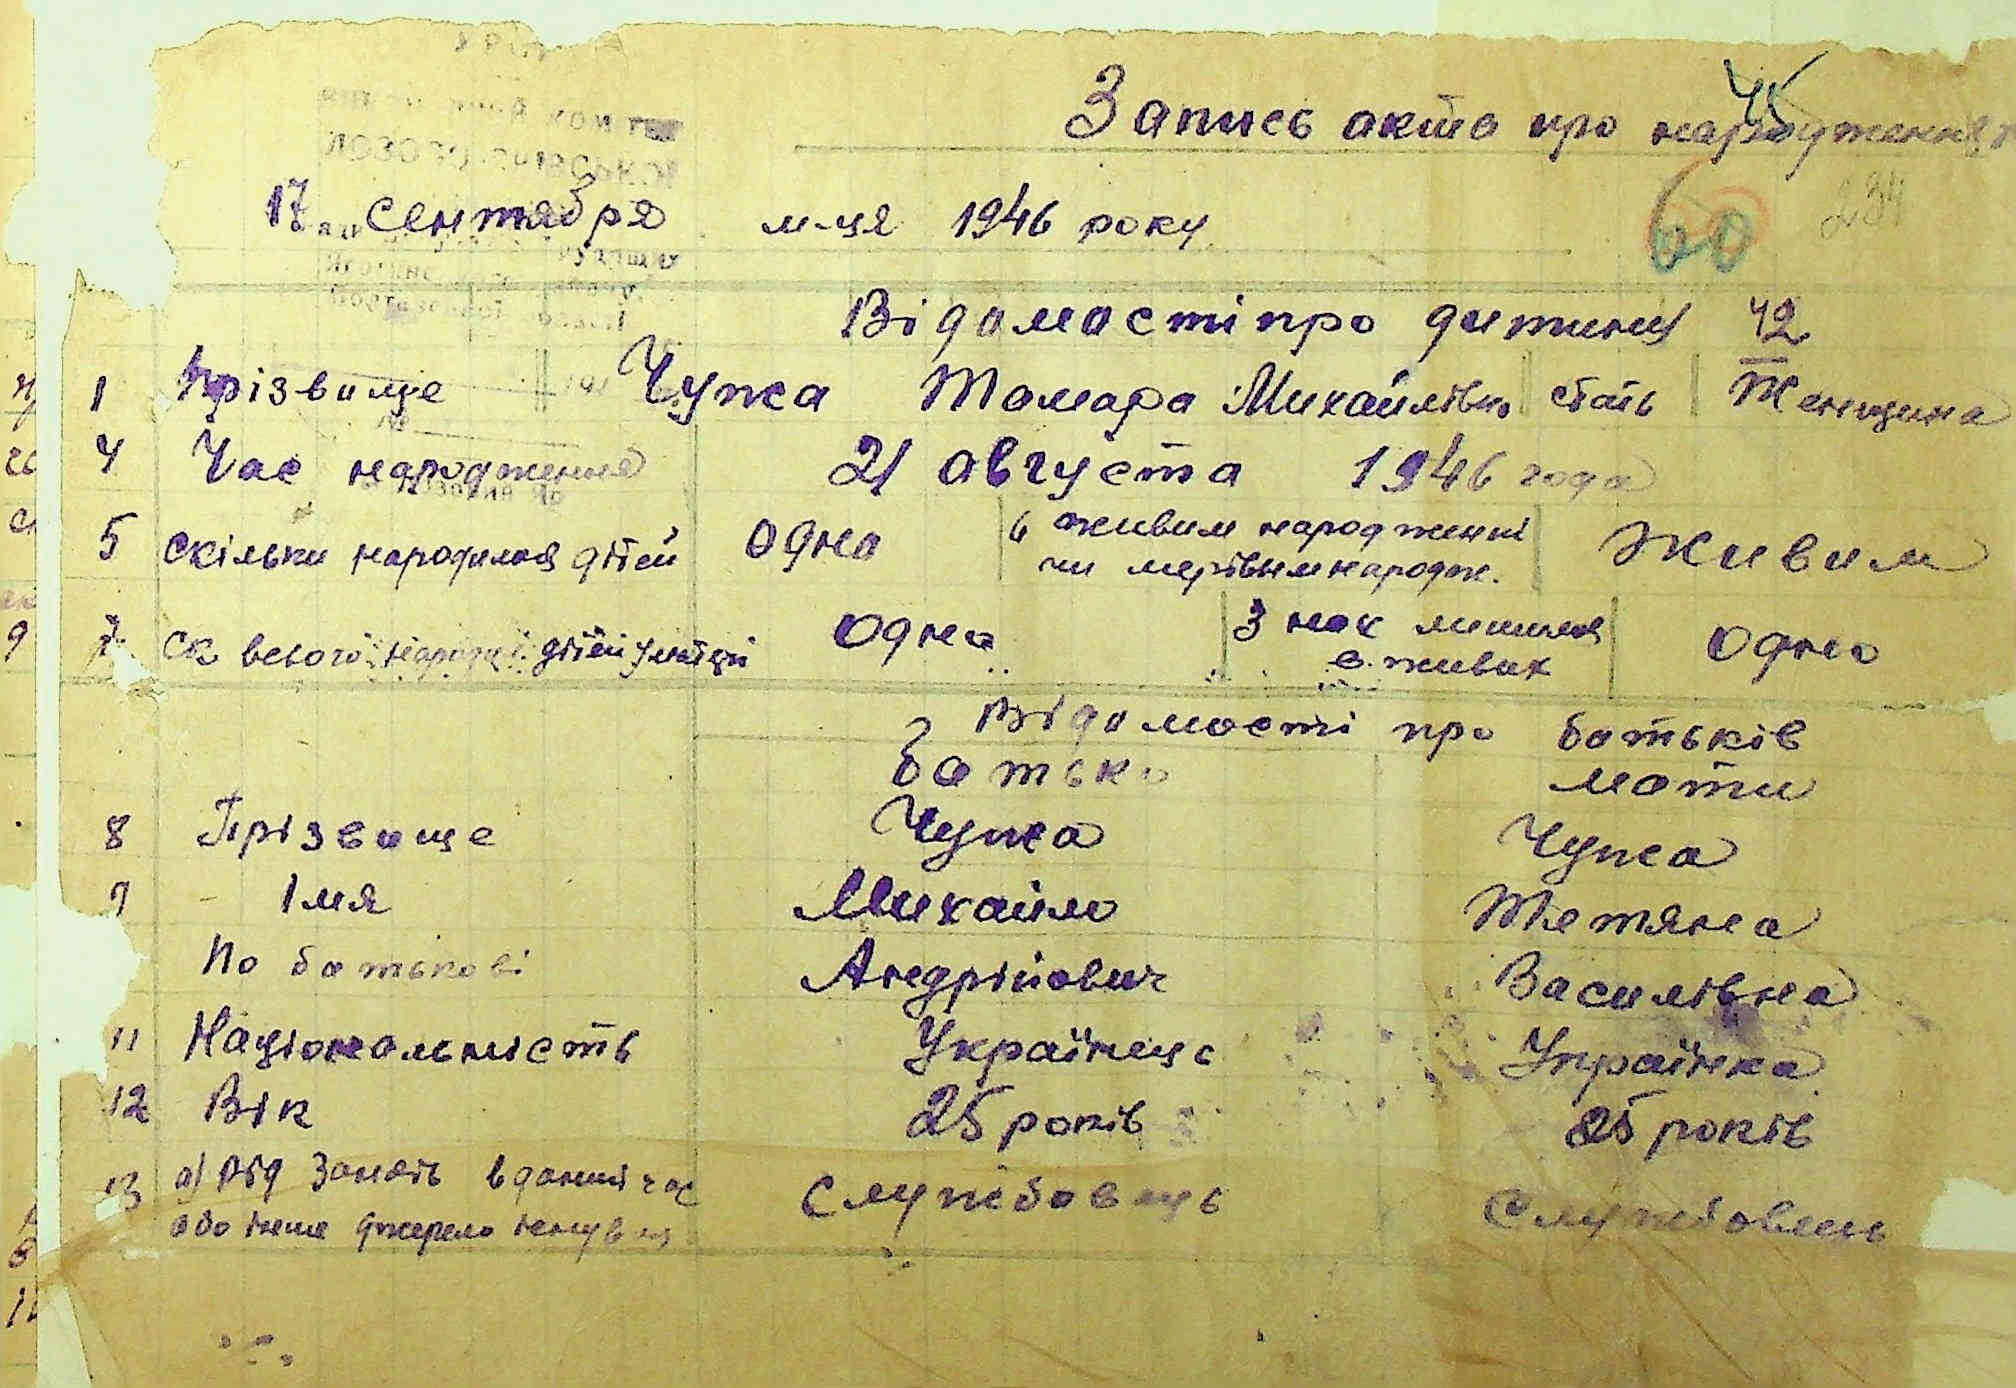 45
Запись акта про народження
60 234
17 сентября м-ця 1946 року
Відомасті про дитину 42
1 Прізвище Чужа Томара Михайлівн стать Женщина
4 Час народження 21 августа 1946 года
5 скільки народилося дітей одна 6 живим народженні
чи мертвым народж. живим
7 Ск всього дітей у матері одна З них лишился
в живих одна
Відомасті про батьків
батько мати
8 Прізвище Чужа Чужа
9 Імя Михайло Тетяна
По батькові Андрійович Василівна
11 Національність Українець Українка
12 Вік 25 років 25 років
13 а) Рід занять в даний час Службовець Службовець
або інше джерело існув